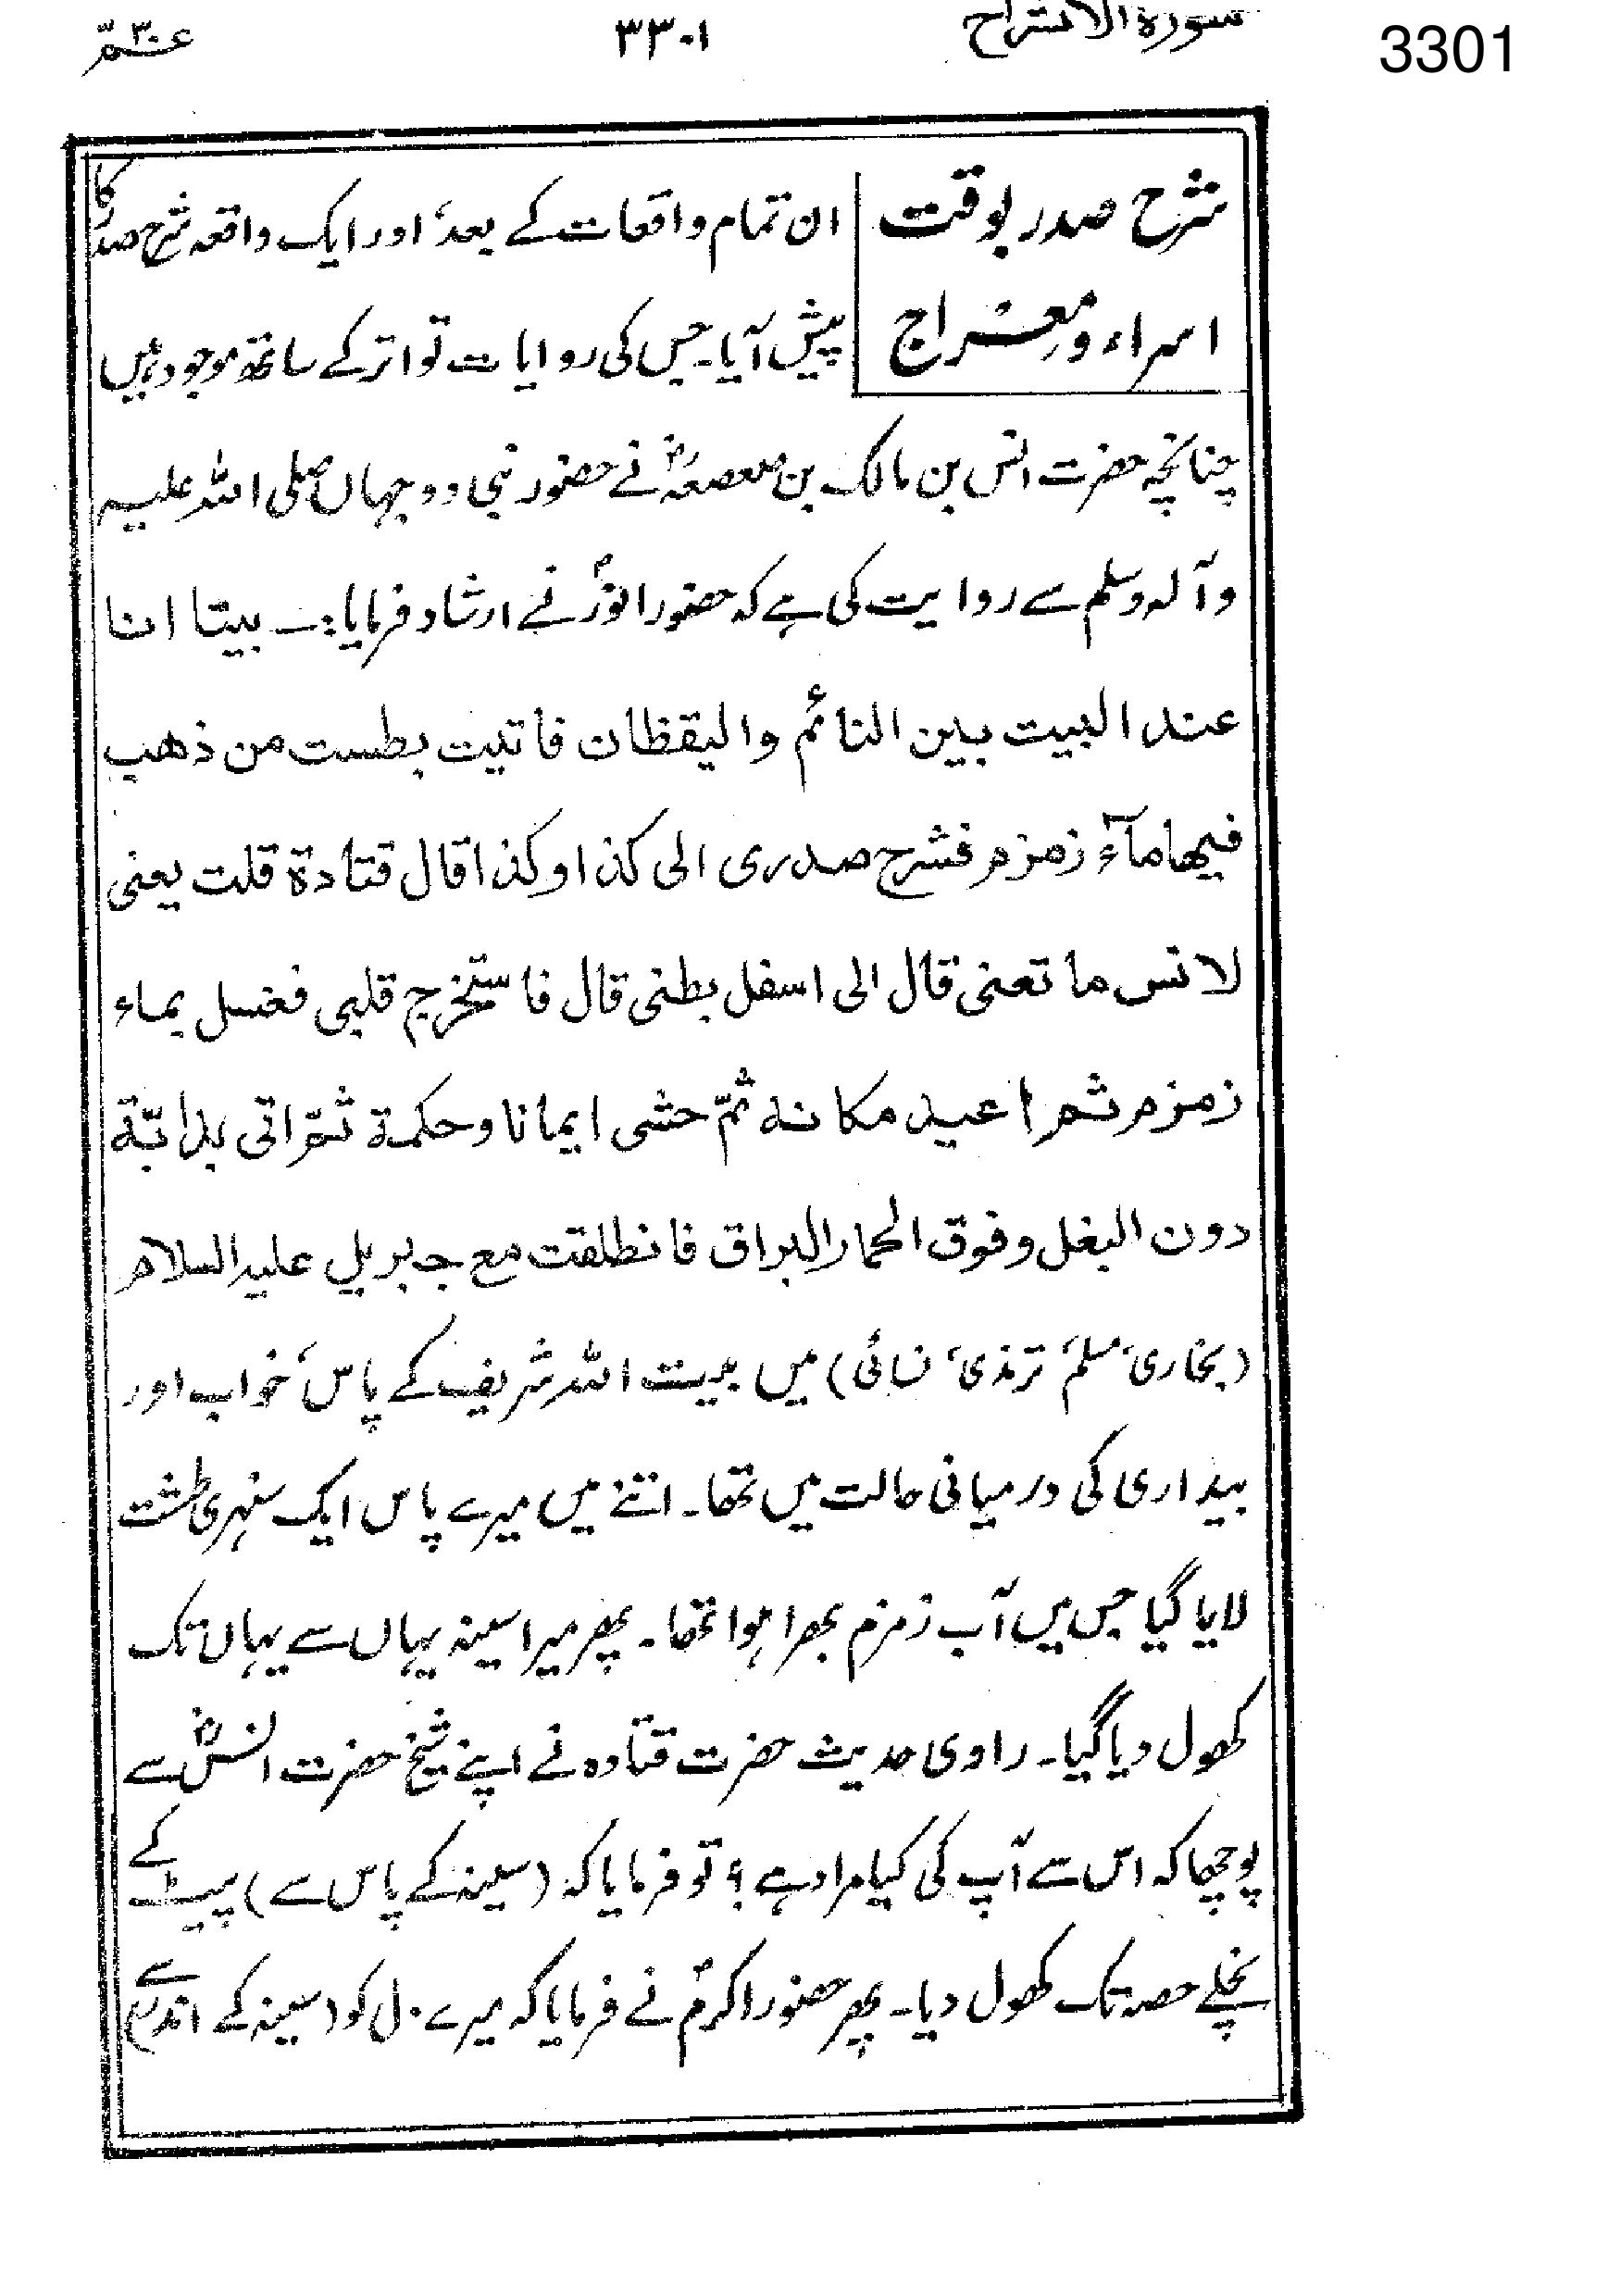 سورة الانشراح ۳۳۰۱ عمّ ۳۰ 3301
شرح صدر بوقت
اسراء و معراج
ان تمام واقعات کے بعد، اور ایک واقعہ شرح صدر کا
پیش آیا۔ جس کی روایات تواتر کے ساتھ موجود ہیں
چنانچہ حضرت انس بن مالک بن صعصعہؓ نے حضور نبی دو جہاں صلی اللہ علیہ
وآلہ وسلم سے روایت کی ہے کہ حضور انورؐ نے ارشاد فرمایا:۔ بینا انا
عند البیت بین النائم والیقظان فاتیت بطست من ذهب
فیها مآء زمزم فشرح صدری الی کذا وکذا قال قتادة قلت یعنی
لانس ما تعنی قال الی اسفل بطنی قال فاستخرج قلبی فغسل بماء
زمزم ثم اعید مکانه ثمّ حشی ایمانا وحکمة ثمّ اتی بدابّة
دون البغل وفوق الحمار البراق فانطلقت مع جبریل علیه السلام
(بخاری، مسلم، ترمذی، نسائی) میں بیت اللہ شریف کے پاس، خواب اور
بیداری کی درمیانی حالت میں تھا۔ اتنے میں میرے پاس ایک سنہری طشت
لایا گیا جس میں آب زمزم بھرا ہوا تھا۔ پھر میرا سینہ یہاں سے یہاں تک
کھول دیا گیا۔ راوی حدیث حضرت قتادہ نے اپنے شیخ حضرت انسؓ سے
پوچھا کہ اس سے آپ کی کیا مراد ہے؟ تو فرمایا کہ (سینہ کے پاس سے) پیٹ کے
نچلے حصہ تک کھول دیا۔ پھر حضور اکرمؐ نے فرمایا کہ میرے دل کو (سینہ کے اندر سے)